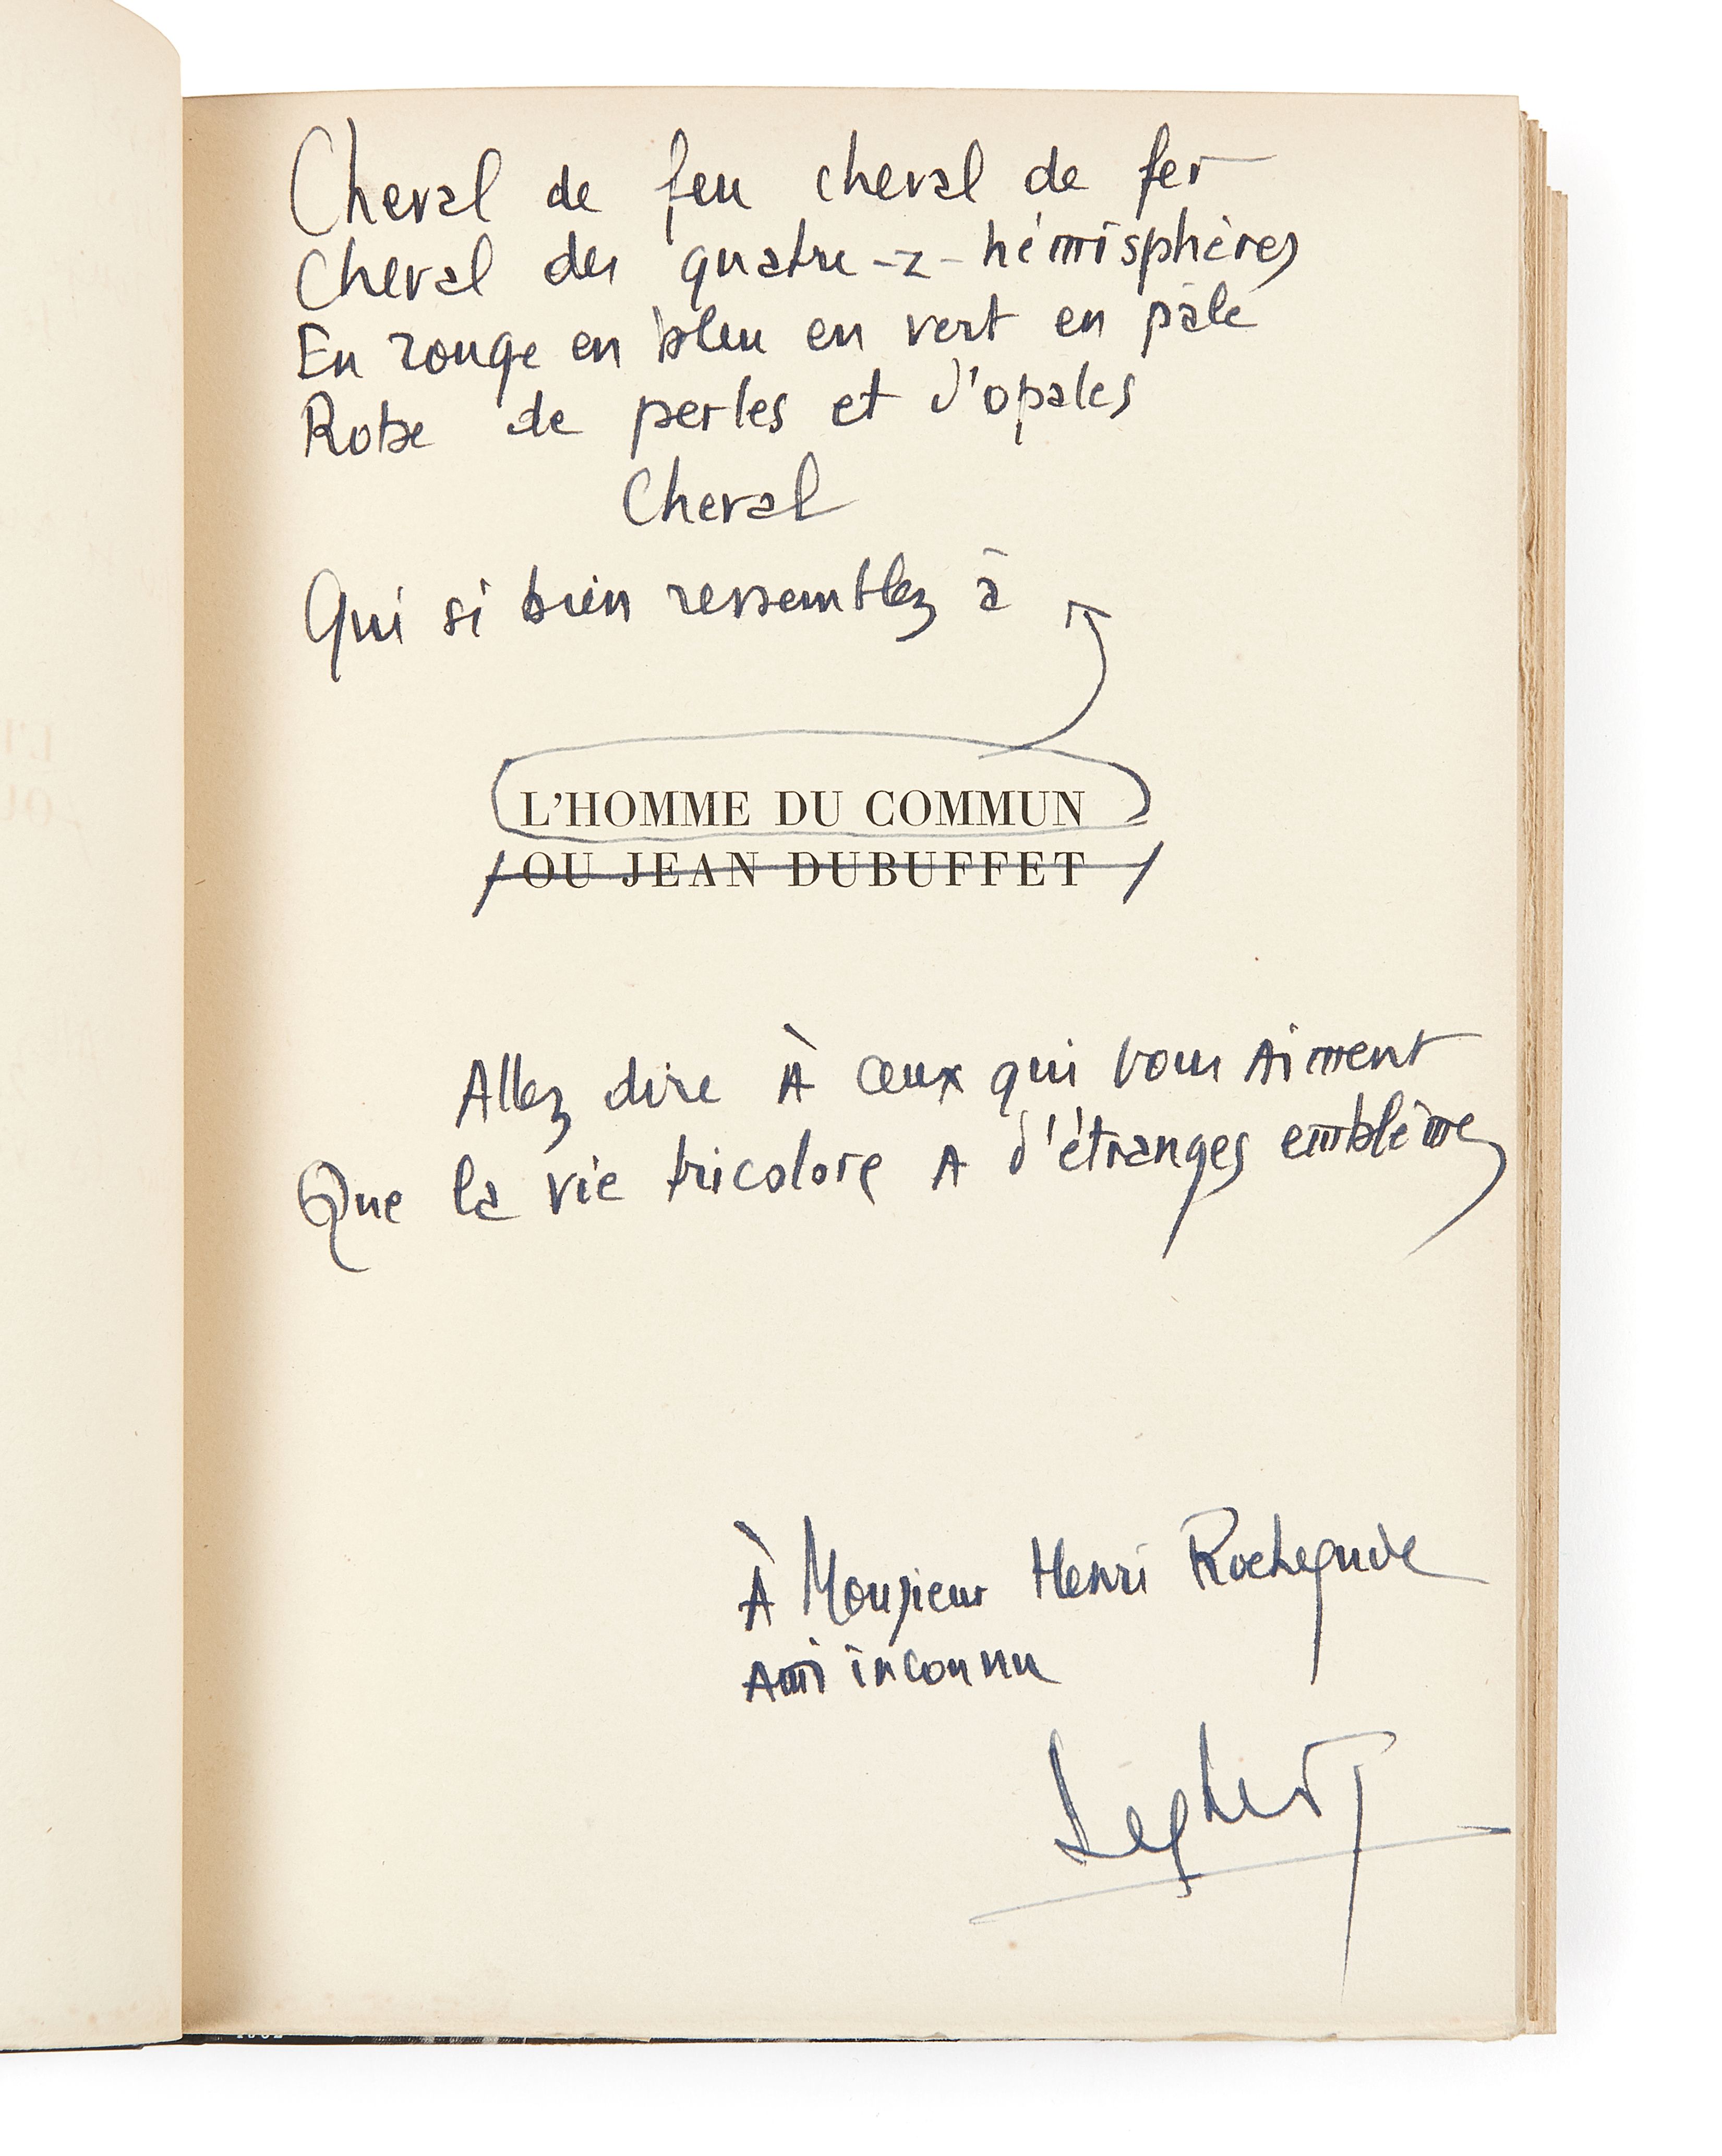 Cheval de feu cheval de fer
Cheval des quatre-z-hémisphères
En rouge en bleu en vert en pâle
Robe de perles et d'opales
Cheval
Qui si bien ressemblez à
L'HOMME DU COMMUN
OU JEAN DUBUFFET
Allez dire À ceux qui vous Aiment
Que la vie tricolore A d'étranges emblèmes
À Monsieur Henri Rochegude
Ami inconnu